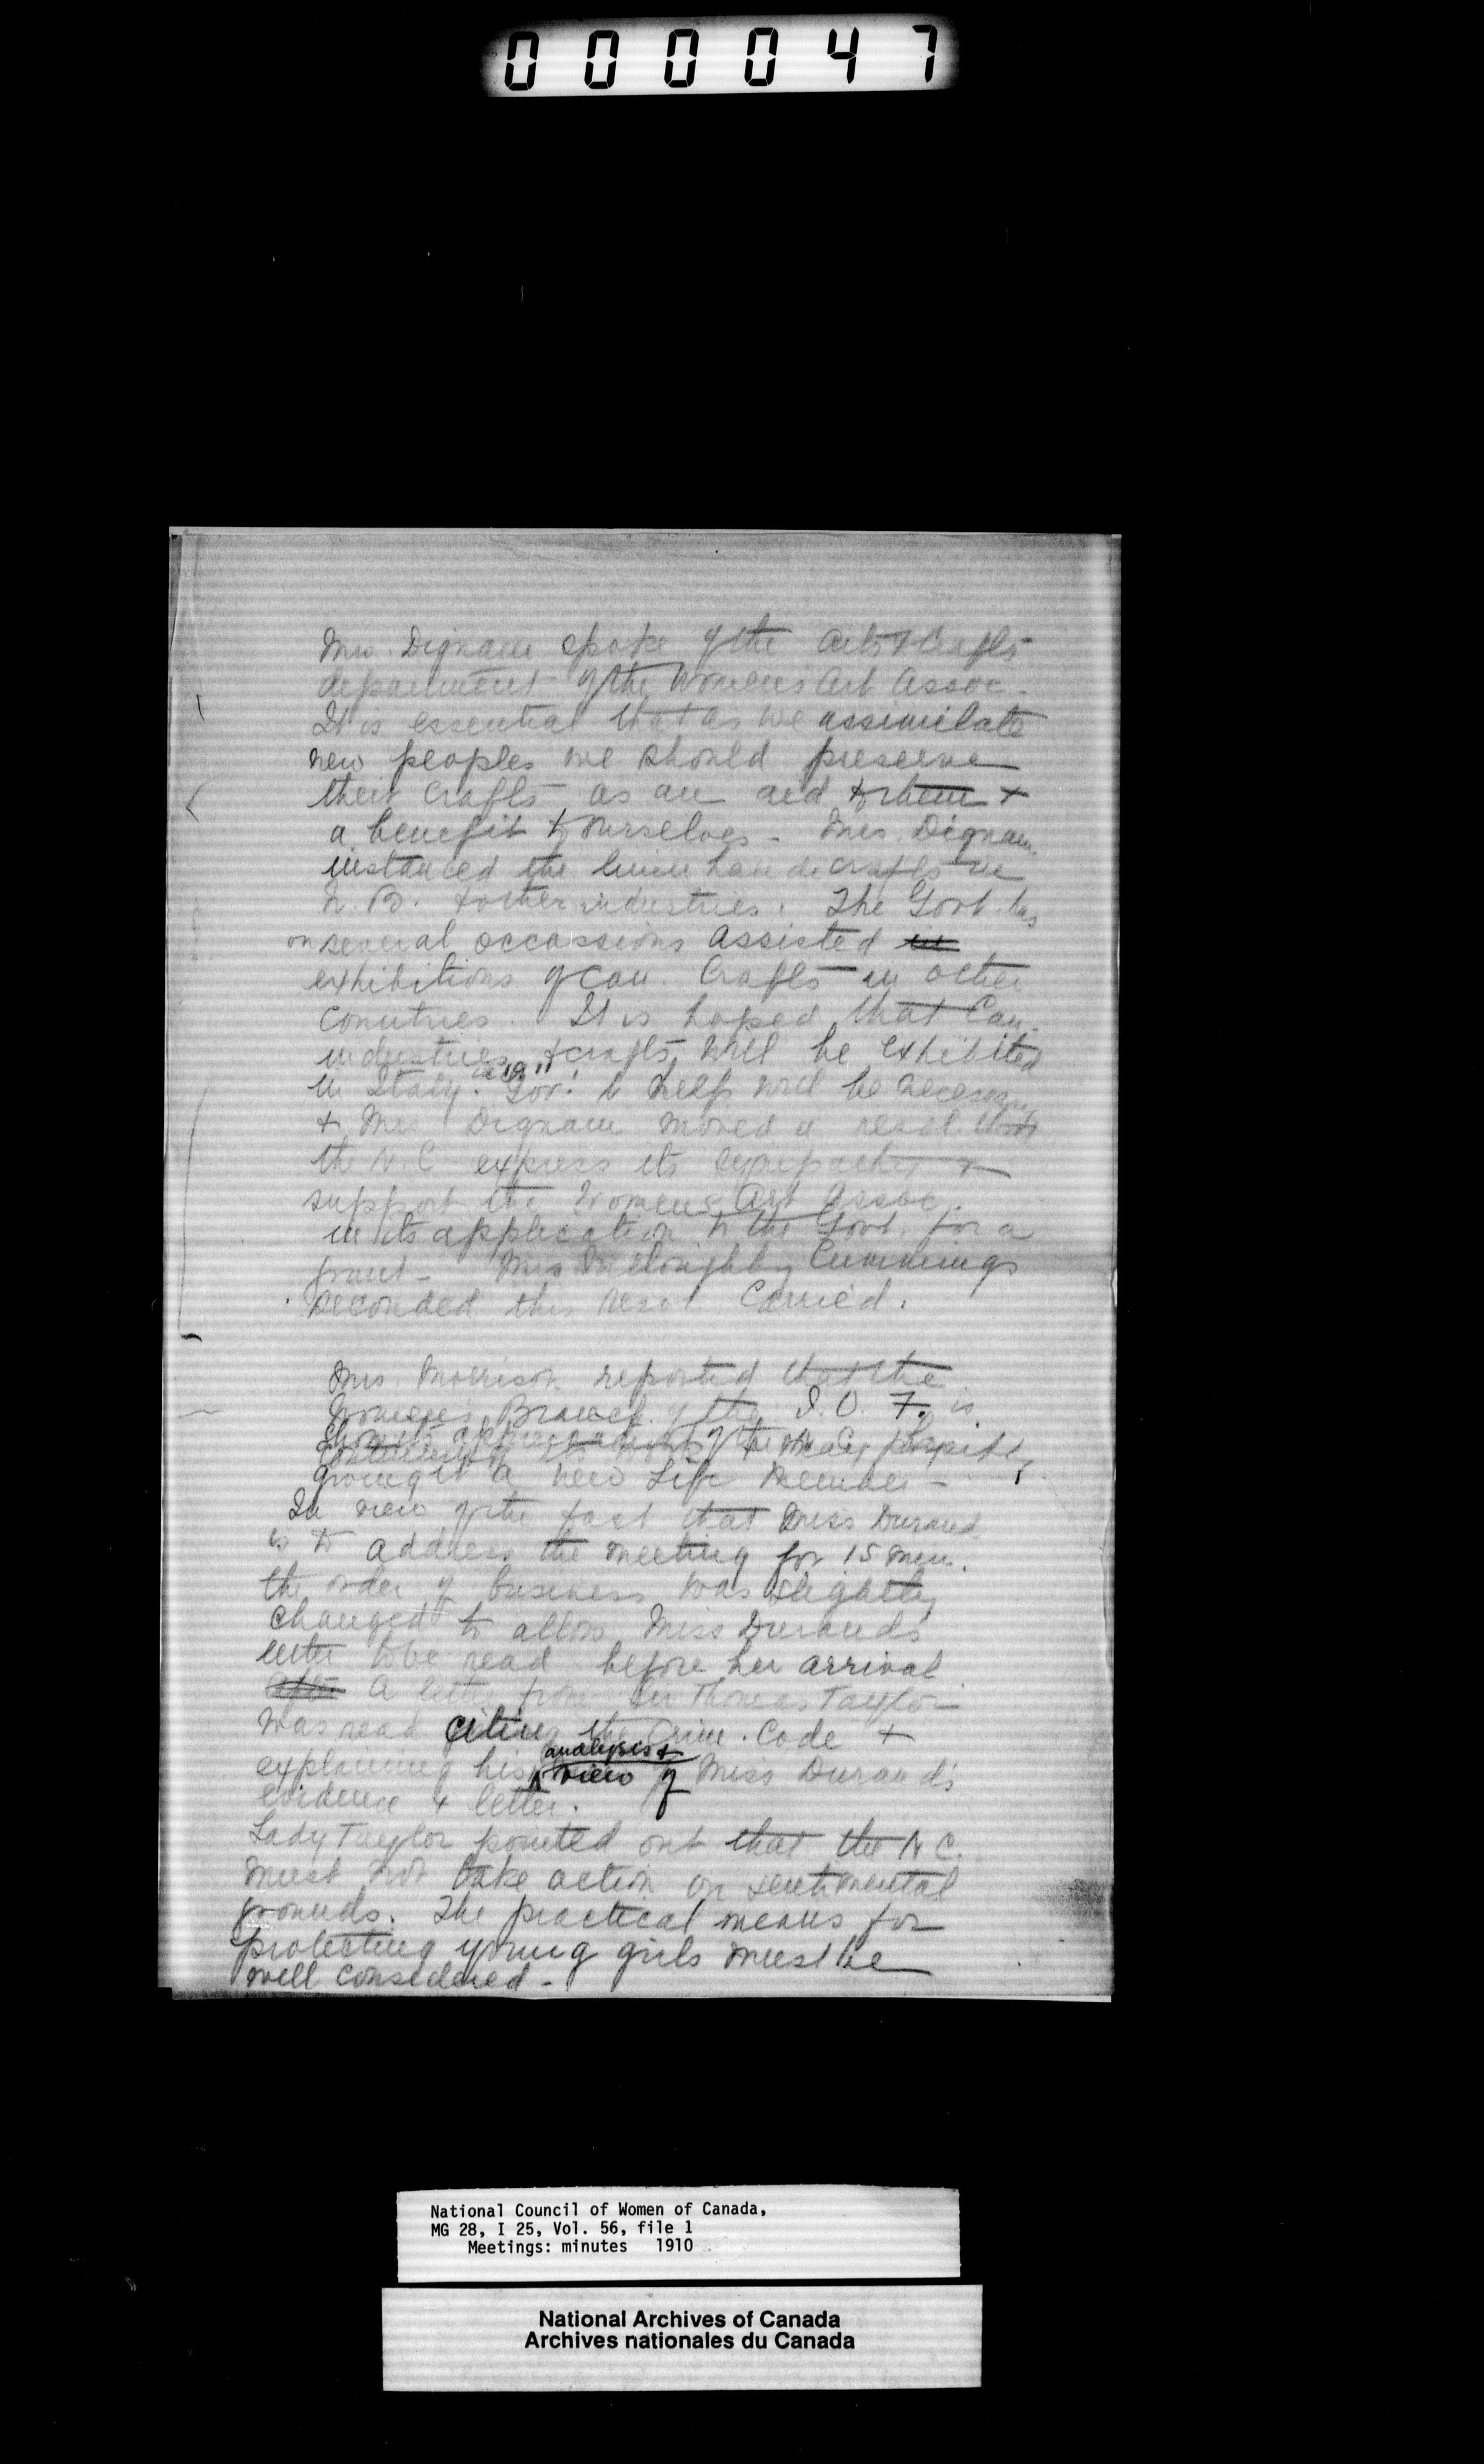 000047
Mrs. Dignam spoke of the Arts & Crafts
department of the Womens Art Assoc.
It is essential that as we assimilate
new peoples we should preserve
their crafts as an aid to them &
a benefit to ourselves - Mrs. Dignam
instanced the linen handicrafts in
N. B. & other industries. The Govt. has
on several occassions assisted in
exhibitions of Can. Crafts in other
countries. It is hoped that Can.
industries & crafts will be exhibited
in Italy. in 1911 Gov't help will be necessary
& Mrs Dignam moved a resol. that
the N.C express its sympathy &
support the Womens Art Assoc.
in its application to the Govt. for a
grant - Mrs Willoughby Cummings
seconded this resol. Carried.
Mrs. Morrison reported that the
Women's Branch of the I. O. F. is
giving it a new Life Member -
In view of the fact that Miss Durand
is to address the meeting for 15 min.
the order of business was slightly
changed to allow Miss Durand's
letter to be read before her arrival
After A letter from Sir Thomas Taylor
was read citing the Crim. Code &
explaining his analysis & view of Miss Durand's
evidence & letter.
Lady Taylor pointed out that the N.C.
must not take action on sentimental
grounds. The practical means for
protecting young girls must be
well considered -
National Council of Women of Canada,
MG 28, I 25, Vol. 56, file 1
Meetings: minutes 1910
National Archives of Canada
Archives nationales du Canada